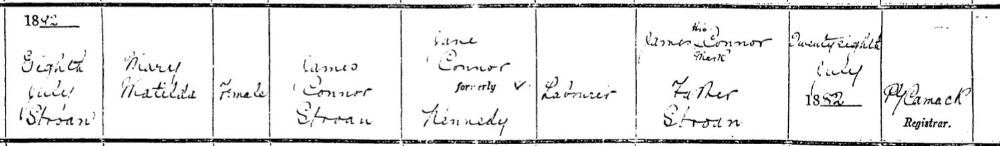 1882
Eighth
July
Stroan
Mary
Matilda
Female
James
Connor
Stroan
Jane
Connor
formerly
Kennedy
Labourer
His
James Connor
Mark
Father
Stroan
Twenty eighth
July
1882
Camack
Registrar.